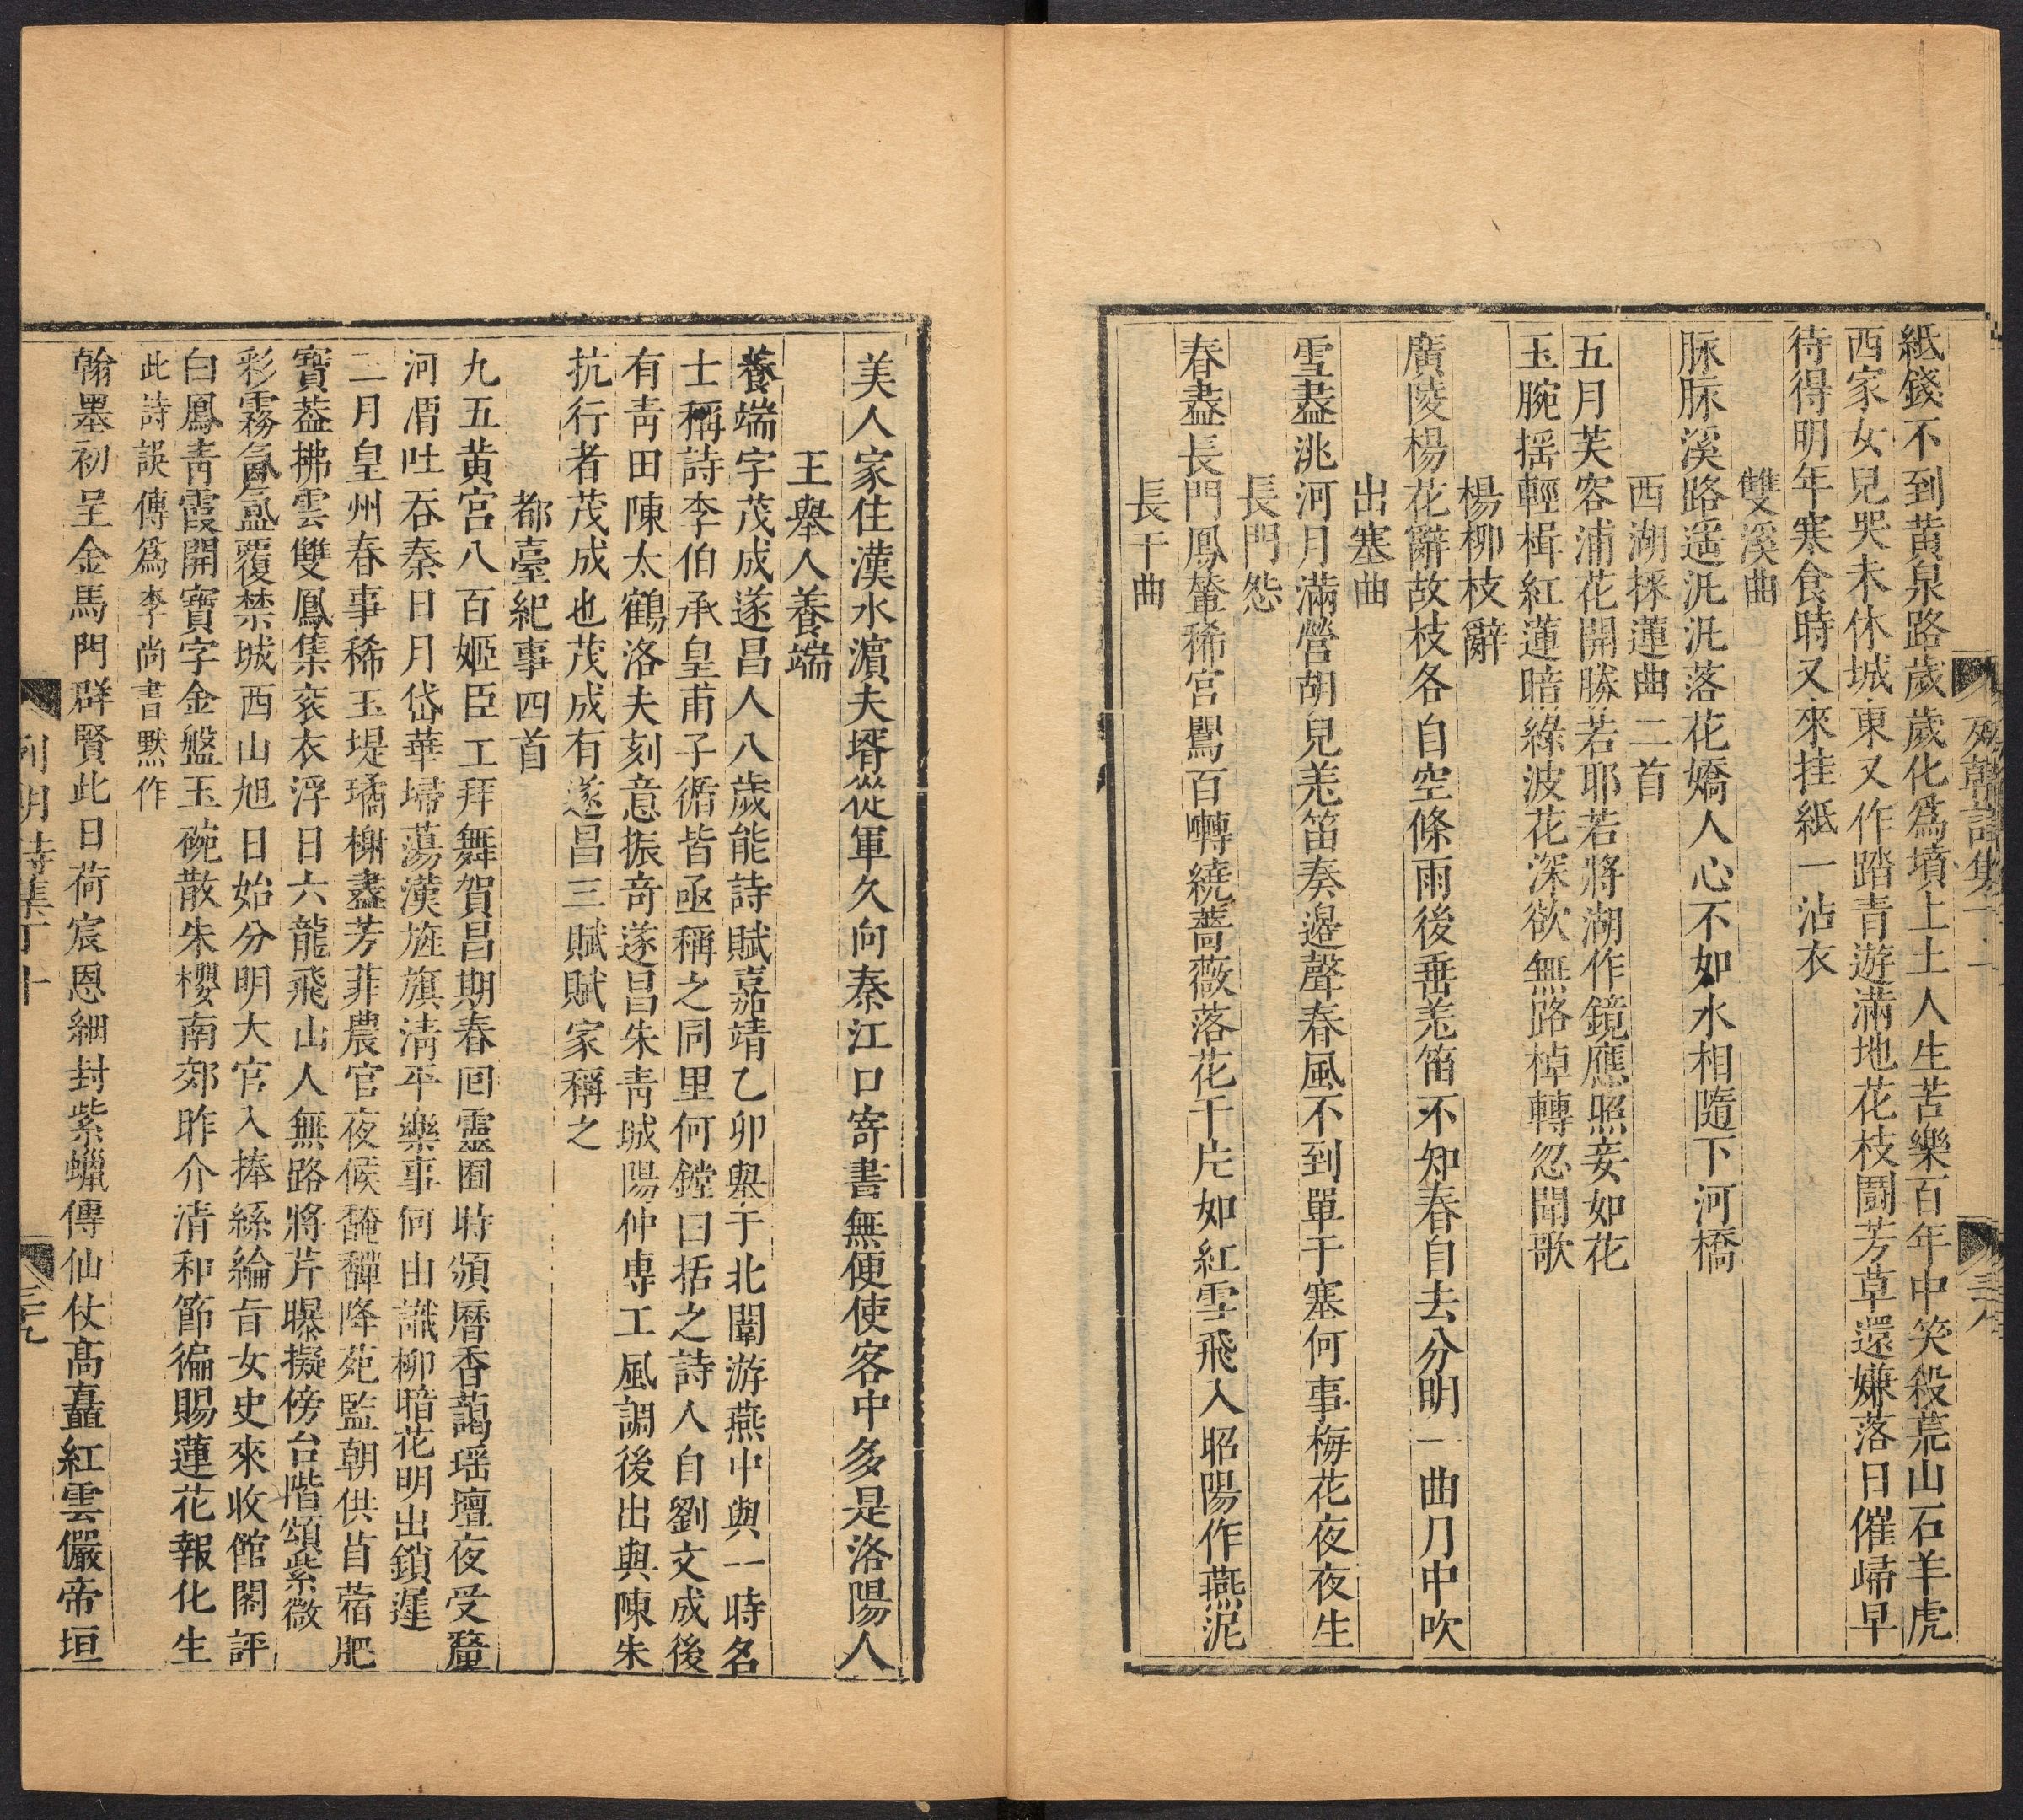 紙錢不到黄泉路歲歲化爲墳上土人生苦樂百年中笑殺荒山石羊虎
西家女兒哭未休城東又作踏青遊滿地花枝鬬芳草還嫌落日催歸早
待得明年寒食時又來挂紙一沾衣
雙溪曲
脉脉溪路遥汎汎落花嬌人心不如水相隨下河橋
西湖採蓮曲二首
五月芙容浦花開勝若耶若將湖作鏡應照妾如花
玉腕揺輕楫紅蓮暗綠波花深欲無路棹轉忽聞歌
楊柳枝辭
廣陵楊花辭故枝各自空條雨後垂羌笛不知春自去分明一曲月中吹
出塞曲
雪盡洮河月滿營胡兒羌笛奏邉聲春風不到單于塞何事梅花夜夜生
長門怨
春盡長門鳳輦稀宮鸎百囀繞薔薇落花千片如紅雪飛入昭陽作燕泥
長干曲
列朝詩集丁十
三十八
美人家住漢水濵夫壻從軍久向秦江口寄書無便使客中多是洛陽人
王舉人養端
養端字茂成遂昌人八歲能詩賦嘉靖乙卯舉于北闈游燕中與一時名
士稱詩李伯承皇甫子循皆亟稱之同里何鏜曰括之詩人自劉文成後
有靑田陳太鶴洛夫刻意振奇遂昌朱靑城陽仲專工風調後出與陳朱
抗行者茂成也茂成有遂昌三賦賦家稱之
都臺紀事四首
九五黄宫八百姬臣工拜舞賀昌期春回靈囿時頒曆香藹瑶壇夜受釐
河渭吐吞秦日月岱華埽蕩漢旌旗淸平樂事何由識柳暗花明出鎖遲
二月皇州春事稀玉堤璚榭盡芳菲農官夜候穜稑降苑監朝供苜蓿肥
寳葢拂雲雙鳳集衮衣浮日六龍飛山人無路將芹曝擬傍台階頌紫微
彩霧氤氲覆禁城西山旭日始分明大官入捧絲綸旨女史來收館閣評
白鳳靑霞開寳字金盤玉碗散朱櫻南郊昨介清和節徧賜蓮花報化生
此詩誤傳爲李尚書默作
翰墨初呈金馬門群賢此日荷宸恩細封紫蠟傳仙仗髙矗紅雲儼帝垣
列朝詩集丁十
三十九